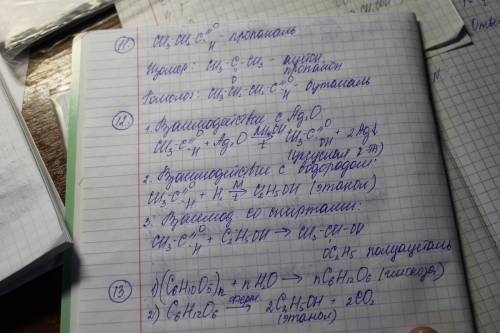 11. CH₃ CH₂ C=O H - пропаналь
Изомер: CH₃ - C - CH₃ - ацетон, пропанон
O
Гомолог: CH₃ CH₂ CH₂ C=O H - бутаналь
12 1. Взаимодействие с Ag₂O:
CH₃-C=O H + Ag₂O NH₄OH → t CH₃-C=O OH + 2Ag↓
(уксусная к-та)
2. Взаимодействие с водородом:
CH₃-C=O H + H₂ Ni → t C₂H₅OH (этанол)
3. Взаимод. со спиртами:
CH₃-C=O H + C₂H₅OH → CH₃-CH-OH
OC₂H₅ полуацеталь
13 1) (C₆H₁₀O₅)n + nH₂O → nC₆H₁₂O₆ (глюкоза)
2) C₆H₁₂O₆ → 2C₂H₅OH + 2CO₂
(этанол)